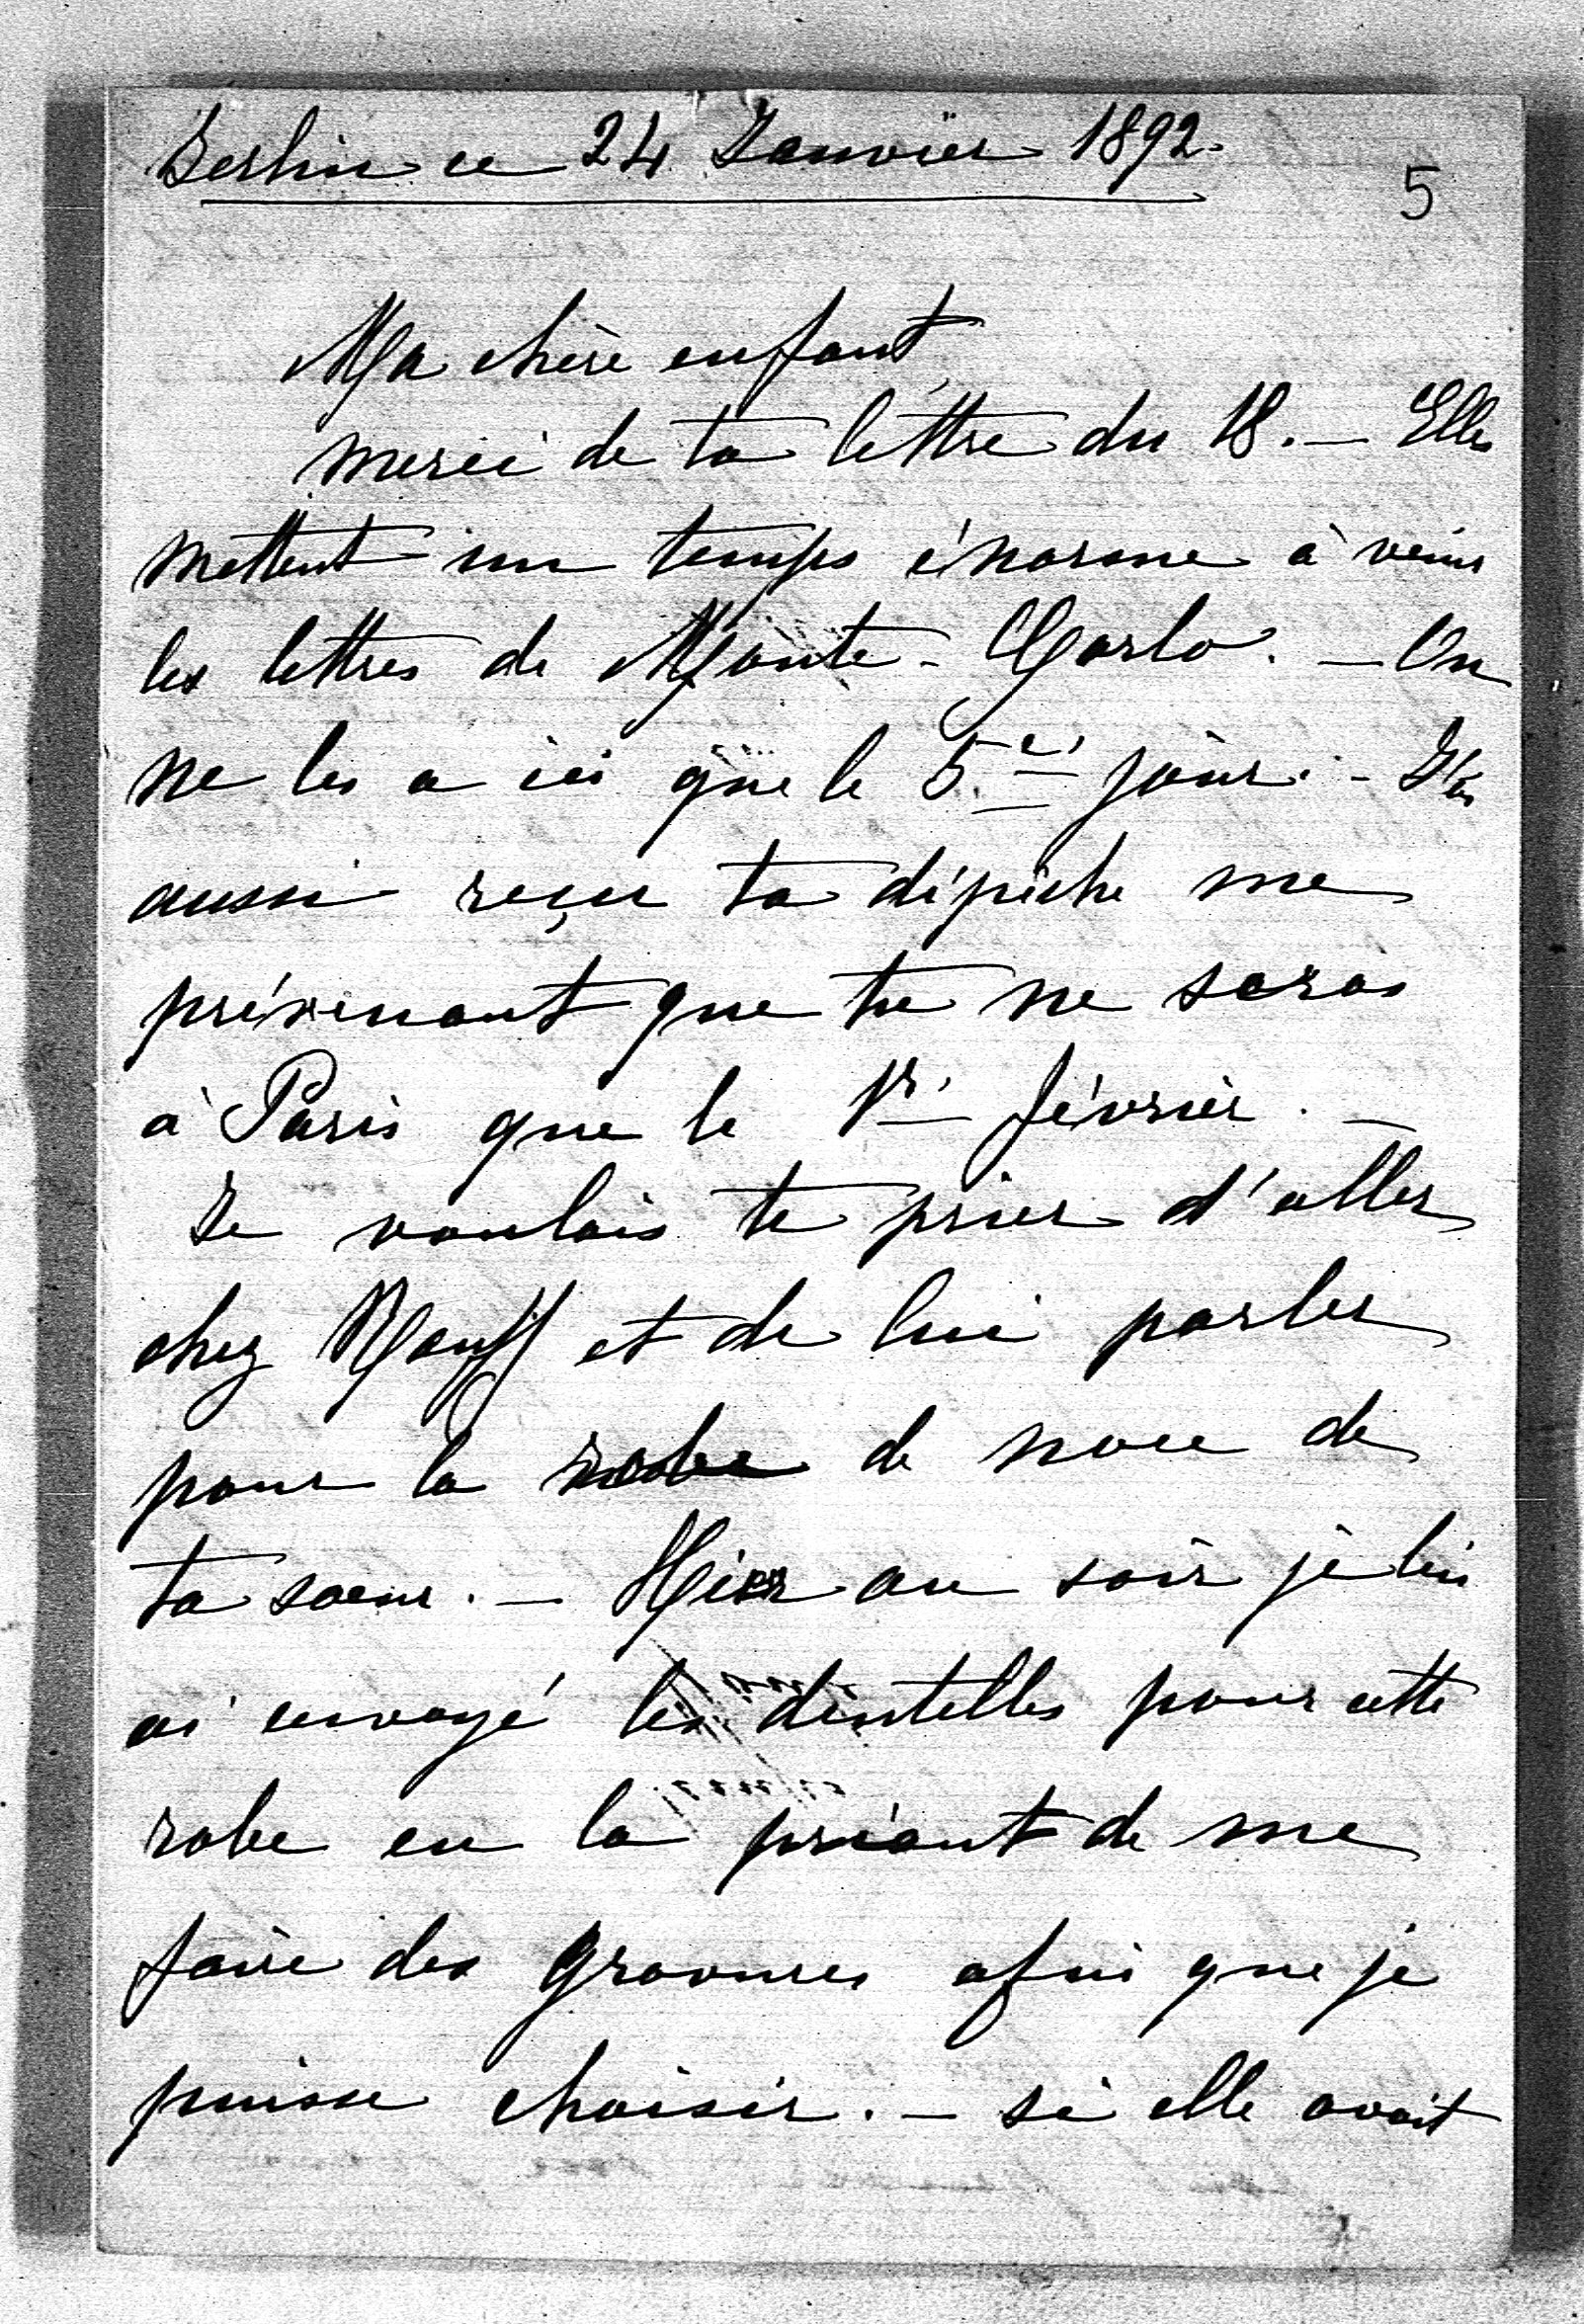 Berlin ce 24 Janvier 1892.
5
Ma chère enfant,
merci de ta lettre du 18. — Elles
mettent un temps énorme à venir
les lettres de Monte-Carlo. — On
ne les a ici que le 5e jour. — J'ai
aussi reçu ta dépêche me
prévenant que tu ne seras
à Paris que le 1r février. —
Je voulais te prier d'aller
chez Rouff et de lui parler
pour la robe de noce de
ta soeur. — Hier au soir je lui
ai envoyé les dentelles pour cette
robe en la priant de me
faire des gravures afin que je
puisse choisir. — si elle avait